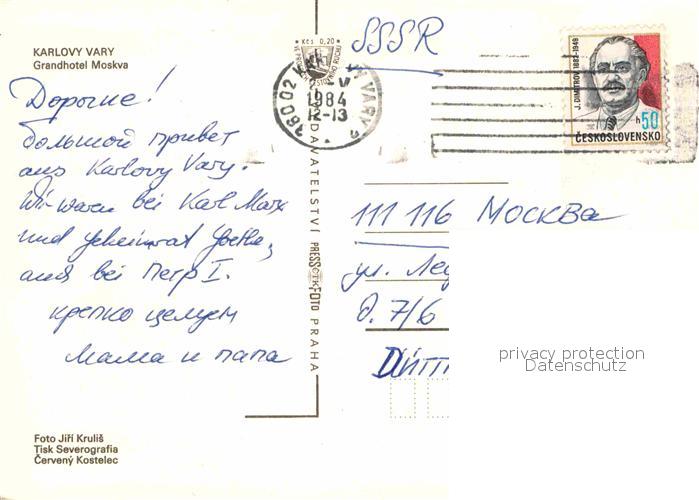 KARLOVY VARY
Grandhotel Moskva
Дорогие!
большой привет
aus Karlovy Vary.
Wir waren bei Karl Marx
und Geheimrat Goethe,
auch bei Петр I.
крепко целуем
мама и папа
Foto Jiří Kruliš
Tisk Severografia
Červený Kostelec
Kčs 0,20
DAVATELSTVÍ PRESSFOTO PRAHA
SSSR
360 02 KARLOVY VARY 2
1984
12-13
J. DIMITROV 1882-1949
h 50
ČESKOSLOVENSKO
111 116 МОСКВА
ул.
д. 7/6
privacy protection
Datenschutz